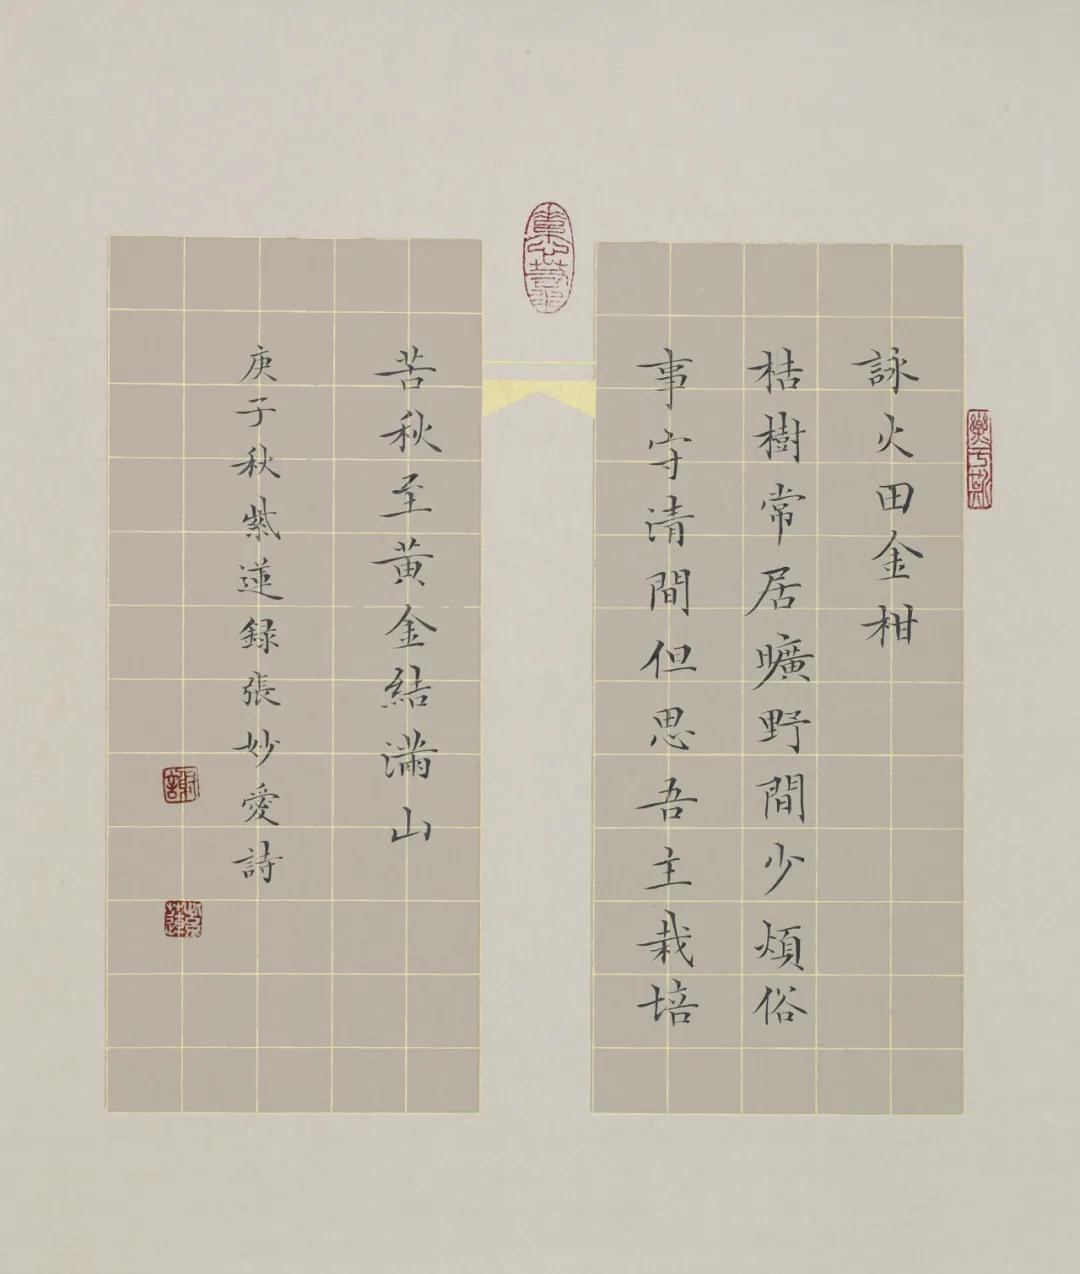 詠火田金柑
桔樹常居曠野間少煩俗
事守清間但思吾主栽培
苦秋至黄金結滿山
庚子秋紫蓮録張妙愛詩
謝
紫蓮